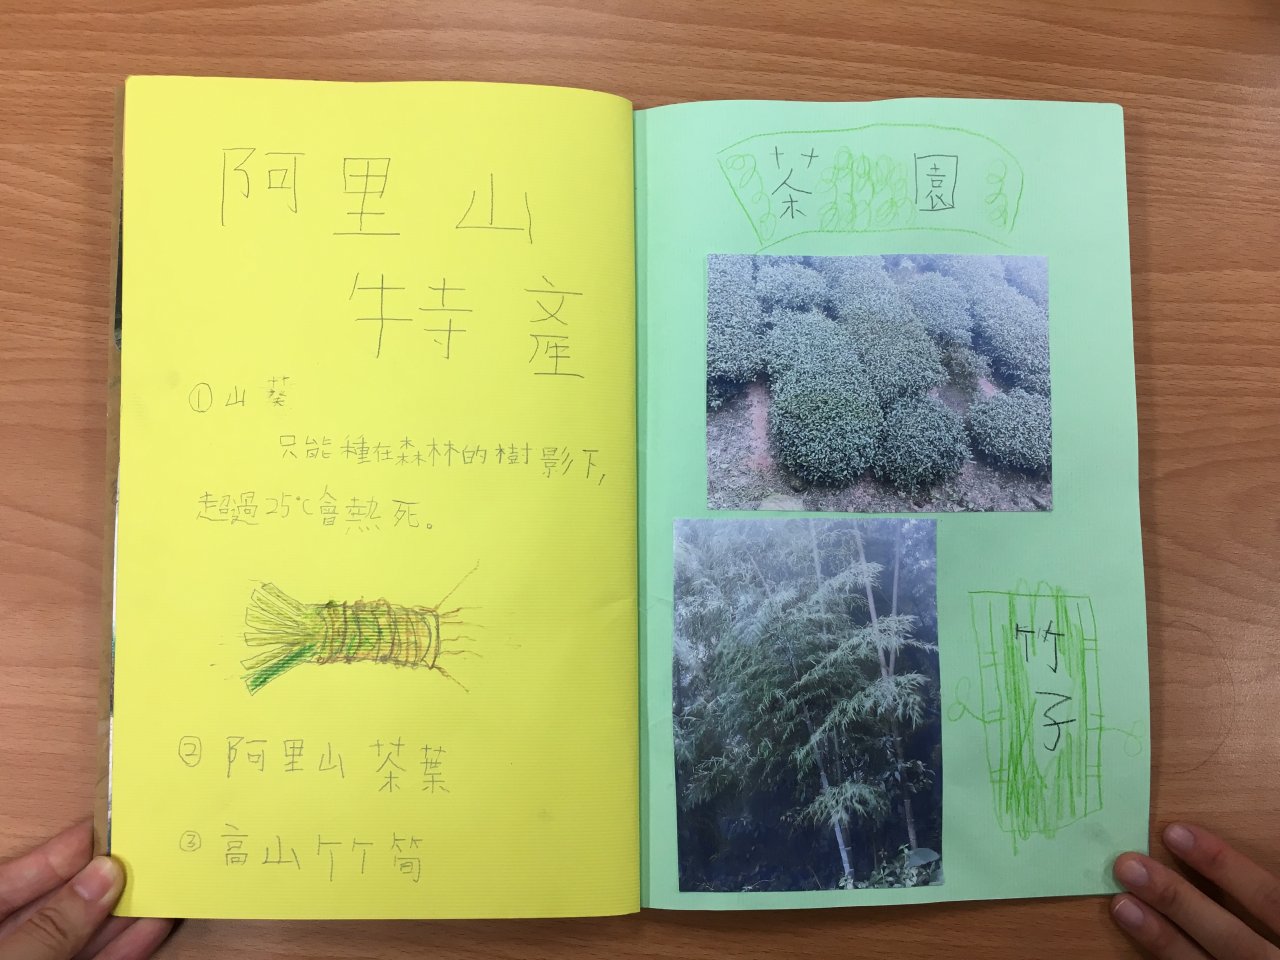 阿里山
特產
①山葵
只能種在森林的樹影下,
超過25℃會熱死。
②阿里山茶葉
③高山竹筍
茶園
竹子